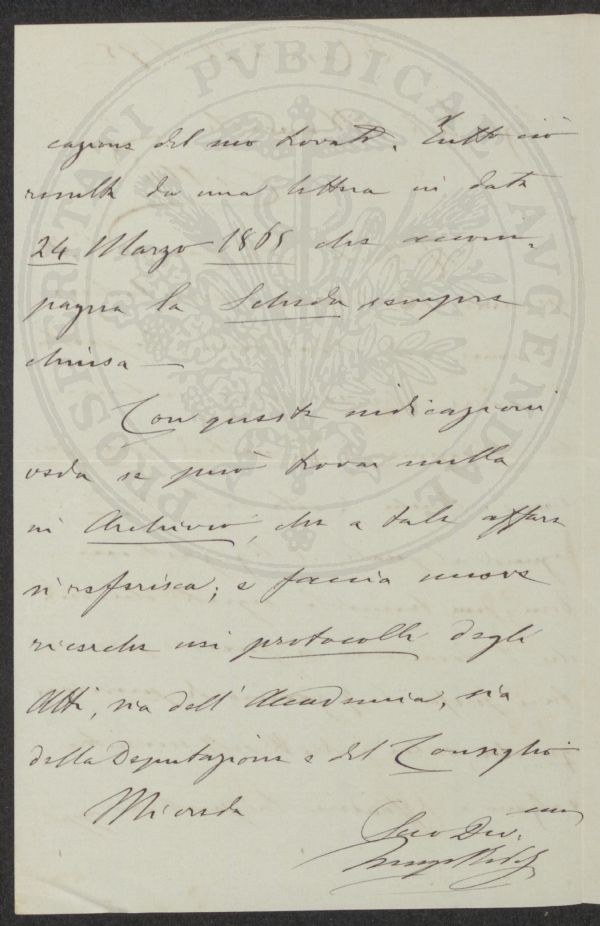 PROSPERITATI PVBLICAE AVGENDAE
cazione del suo trovato. Tutto ciò
risulta da una lettera in data
24 Marzo 1865 che accom-
pagna la Scheda sempre
chiusa —
Con queste indicazioni
veda se può trovar nulla
in Archivio, che a tale affare
si riferisca; e faccia nuove
ricerche nei protocolli degli
Atti, sia dell' Accademia, sia
della Deputazione e del Consiglio
Mi creda
Suo Dev.mo